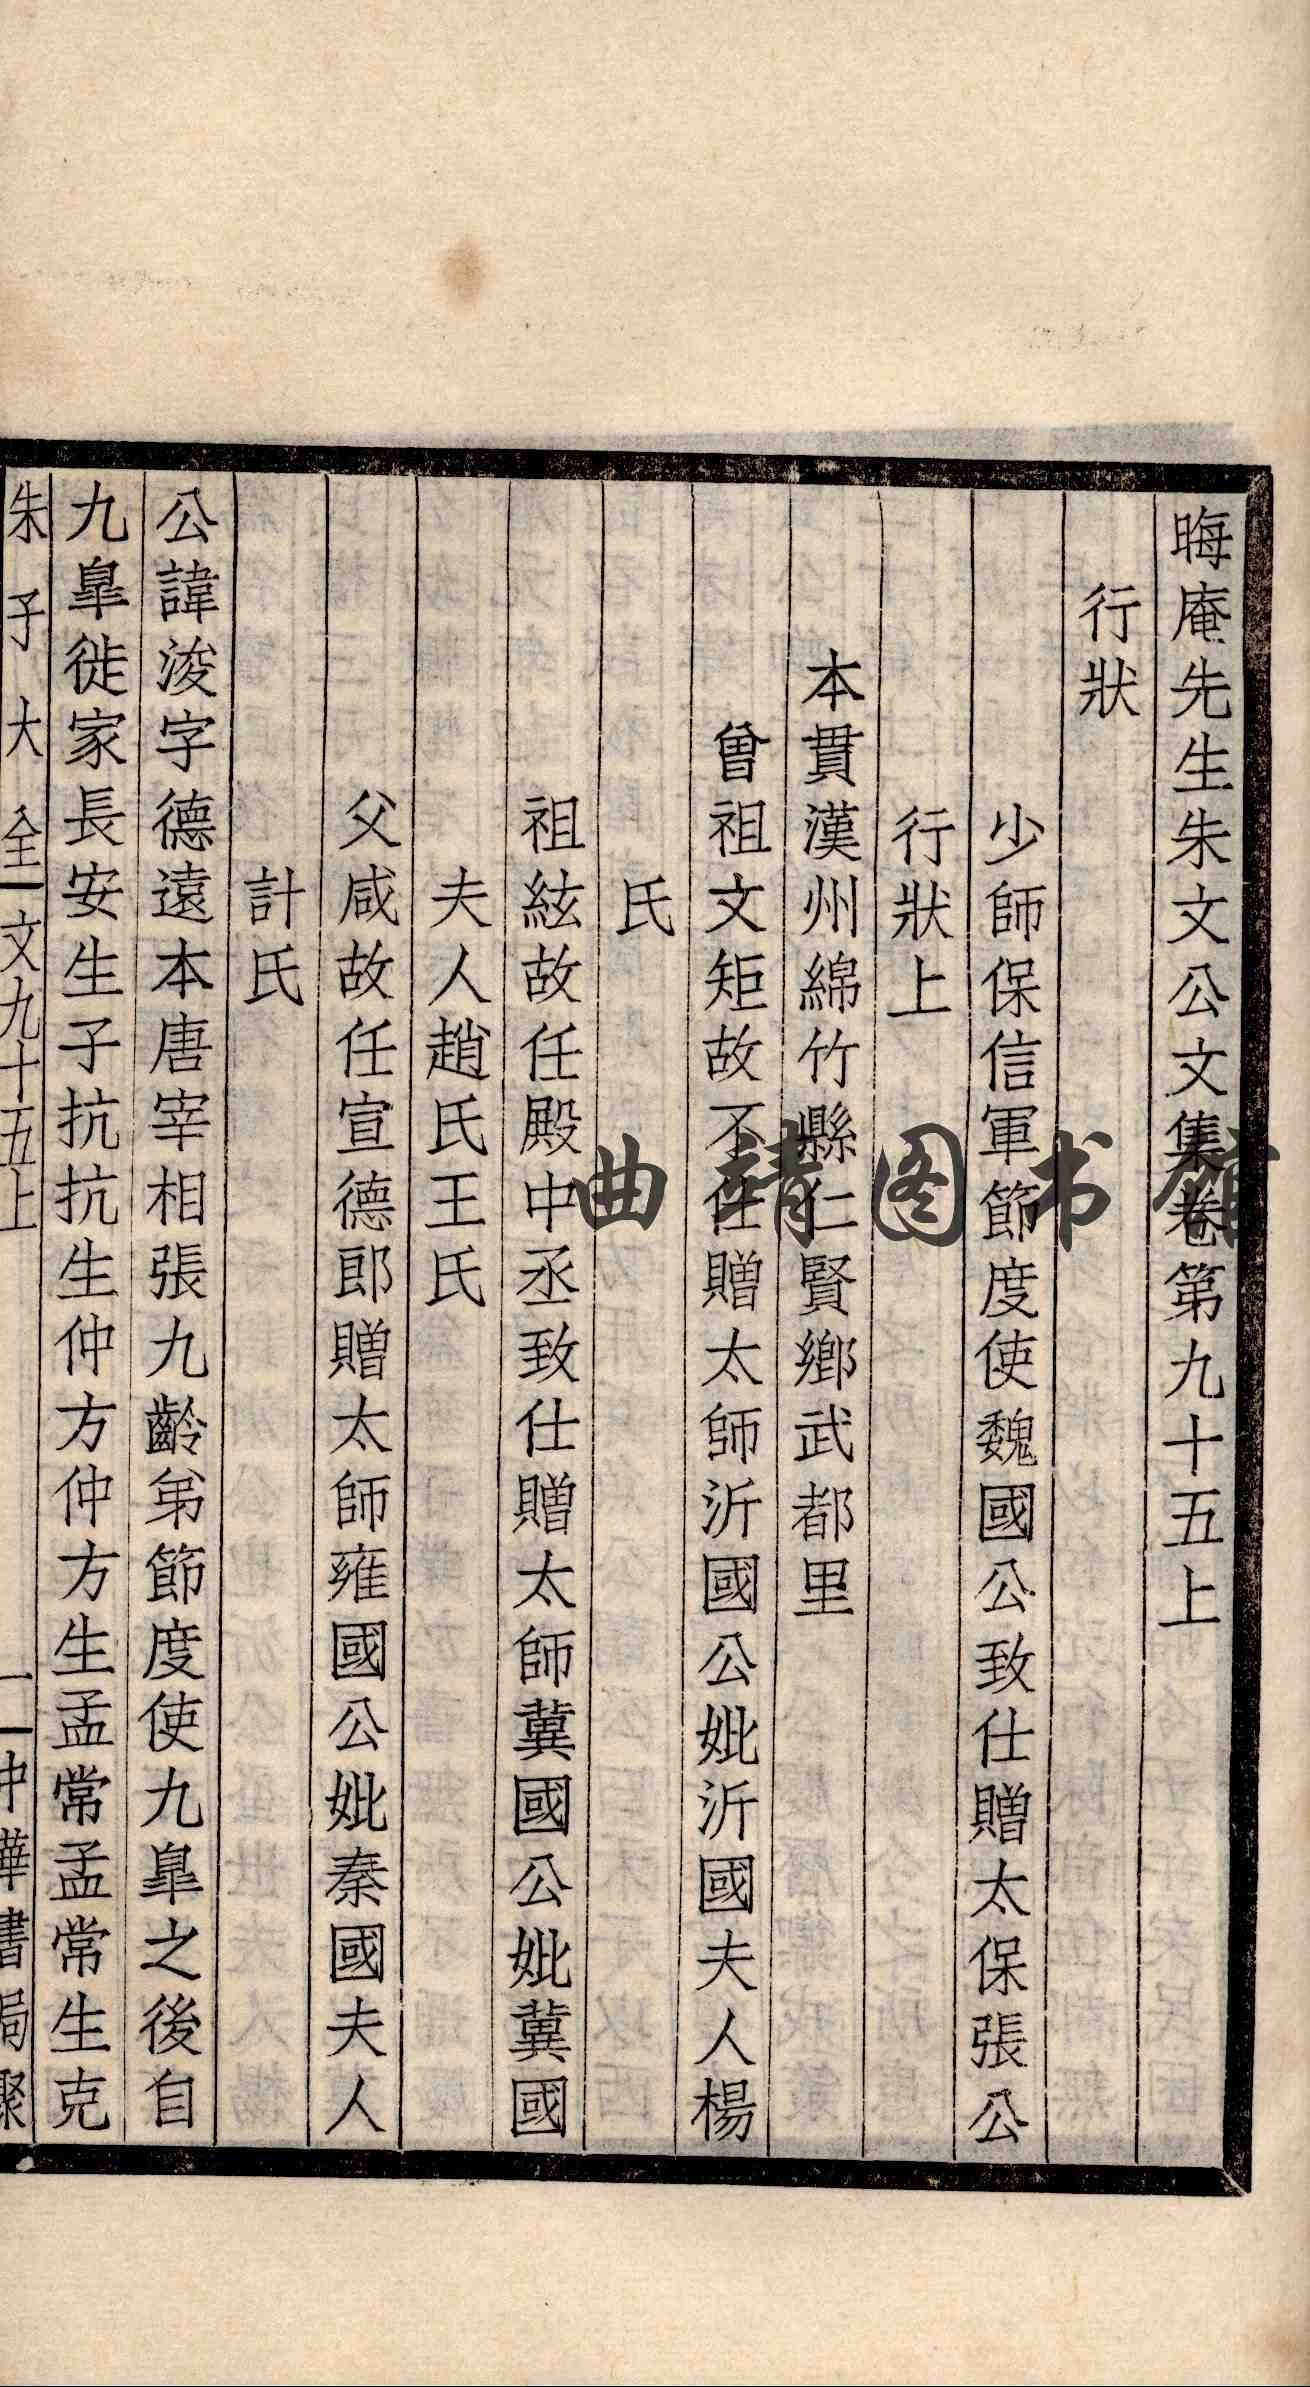 晦庵先生朱文公文集卷第九十五上
行狀
少師保信軍節度使魏國公致仕贈太保張公
行狀上
本貫漢州綿竹縣仁賢鄉武都里
曾祖文矩故不仕贈太師沂國公妣沂國夫人楊
氏
祖絃故任殿中丞致仕贈太師冀國公妣冀國
夫人趙氏王氏
父咸故任宣德郎贈太師雍國公妣秦國夫人
計氏
公諱浚字德遠本唐宰相張九齡弟節度使九皐之後自
九皐徙家長安生子抗抗生仲方仲方生孟常孟常生克
朱子大全 文九十五上 一 中華書局聚
曲靖图书馆